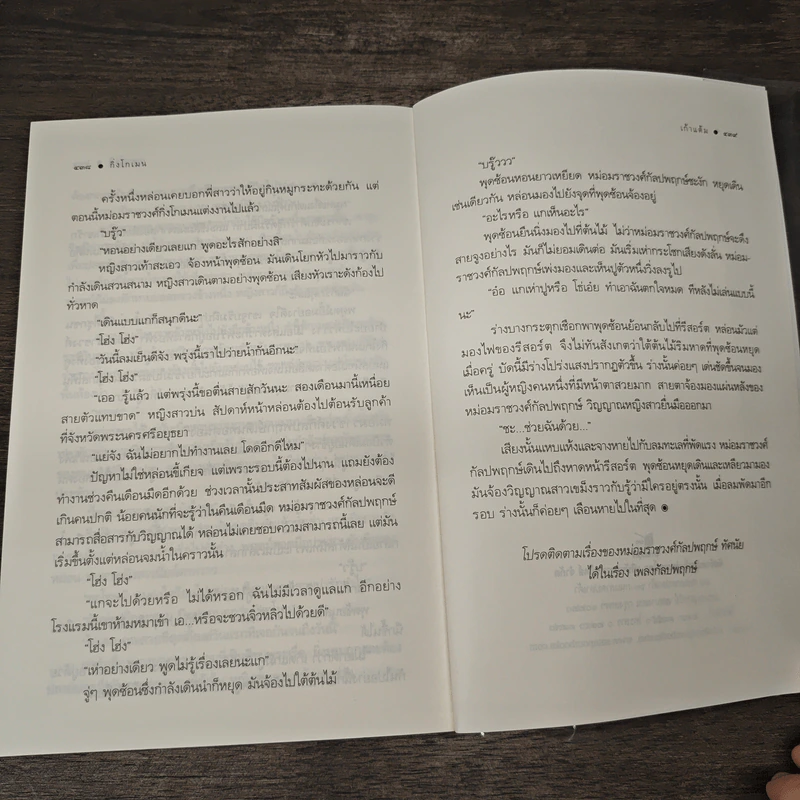 ๔๓๘ ● กิ่งโกเมน
ครั้งหนึ่งหล่อนเคยบอกพี่สาวว่าให้อยู่กินหมูกระทะด้วยกัน แต่
ตอนนี้หม่อมราชวงศ์กิ่งโกเมนแต่งงานไปแล้ว
“บรู๊ว”
“หอนอย่างเดียวเลยแก พูดอะไรสักอย่างสิ”
หญิงสาวเท้าสะเอว จ้องหน้าพุดซ้อน มันเดินโยกหัวไปมาราวกับ
กำลังเดินสวนสนาม หญิงสาวเดินตามอย่างพุดซ้อน เสียงหัวเราะดังก้องไป
ทั่วหาด
“เดินแบบแกก็สนุกดีนะ”
“โฮ่ง โฮ่ง”
“วันนี้ลมเย็นดีจัง พรุ่งนี้เราไปว่ายน้ำกันอีกนะ”
“โฮ่ง โฮ่ง”
“เออ รู้แล้ว แต่พรุ่งนี้ขอตื่นสายสักวันนะ สองเดือนมานี้เหนื่อย
สายตัวแทบขาด” หญิงสาวบ่น สัปดาห์หน้าหล่อนต้องไปต้อนรับลูกค้า
ที่จังหวัดพระนครศรีอยุธยา
“แย่จัง ฉันไม่อยากไปทำงานเลย โดดอีกดีไหม”
ปัญหาไม่ใช่หล่อนขี้เกียจ แต่เพราะรอบนี้ต้องไปนาน แถมยังต้อง
ทำงานช่วงคืนเดือนมืดอีกด้วย ช่วงเวลานั้นประสาทสัมผัสของหล่อนจะดี
เกินคนปกติ น้อยคนนักที่จะรู้ว่าในคืนเดือนมืด หม่อมราชวงศ์กัลปพฤกษ์
สามารถสื่อสารกับวิญญาณได้ หล่อนไม่เคยชอบความสามารถนี้เลย แต่มัน
เริ่มขึ้นตั้งแต่หล่อนจมน้ำในคราวนั้น
“โฮ่ง โฮ่ง”
“แกจะไปด้วยหรือ ไม่ได้หรอก ฉันไม่มีเวลาดูแลแก อีกอย่าง
โรงแรมนี้เขาห้ามหมาเข้า เอ...หรือจะชวนจิ๋วหลิวไปด้วยดี”
“โฮ่ง โฮ่ง”
“เห่าอย่างเดียว พูดไม่รู้เรื่องเลยนะแก”
จู่ๆ พุดซ้อนซึ่งกำลังเดินนำก็หยุด มันจ้องไปใต้ต้นไม้
เก้าแต้ม ● ๔๓๙
“บรู๊ววว”
พุดซ้อนหอนยาวเหยียด หม่อมราชวงศ์กัลปพฤกษ์ชะงัก หยุดเดิน
เช่นเดียวกัน หล่อนมองไปยังจุดที่พุดซ้อนจ้องอยู่
“อะไรหรือ แกเห็นอะไร”
พุดซ้อนยืนนิ่งมองไปที่ต้นไม้ ไม่ว่าหม่อมราชวงศ์กัลปพฤกษ์จะดึง
สายจูงอย่างไร มันก็ไม่ยอมเดินต่อ มันเริ่มเห่ากระโชกเสียงดังลั่น หม่อม-
ราชวงศ์กัลปพฤกษ์เพ่งมองและเห็นปูตัวหนึ่งวิ่งลงรูไป
“อ๋อ แกเห่าปูหรือ โธ่เอ๋ย ทำเอาฉันตกใจหมด ทีหลังไม่เล่นแบบนี้
นะ”
ร่างบางกระตุกเชือกพาพุดซ้อนย้อนกลับไปที่รีสอร์ต หล่อนมัวแต่
มองไฟของรีสอร์ต จึงไม่ทันสังเกตว่าใต้ต้นไม้ริมหาดที่พุดซ้อนหยุด
เมื่อครู่ บัดนี้มีร่างโปร่งแสงปรากฏตัวขึ้น ร่างนั้นค่อยๆ เด่นชัดขึ้นจนมอง
เห็นเป็นผู้หญิงคนหนึ่งที่มีหน้าตาสวยมาก สายตาจ้องมองแผ่นหลังของ
หม่อมราชวงศ์กัลปพฤกษ์ วิญญาณหญิงสาวยื่นมือออกมา
“ชะ...ช่วยฉันด้วย...”
เสียงนั้นแหบแห้งและจางหายไปกับลมทะเลที่พัดแรง หม่อมราชวงศ์
กัลปพฤกษ์เดินไปถึงหาดหน้ารีสอร์ต พุดซ้อนหยุดเดินและเหลียวมามอง
มันจ้องวิญญาณสาวเขม็งราวกับรู้ว่ามีใครอยู่ตรงนั้น เมื่อลมพัดมาอีก
รอบ ร่างนั้นก็ค่อยๆ เลือนหายไปในที่สุด ●
โปรดติดตามเรื่องของหม่อมราชวงศ์กัลปพฤกษ์ ทัศนัย
ได้ในเรื่อง เพลงกัลปพฤกษ์